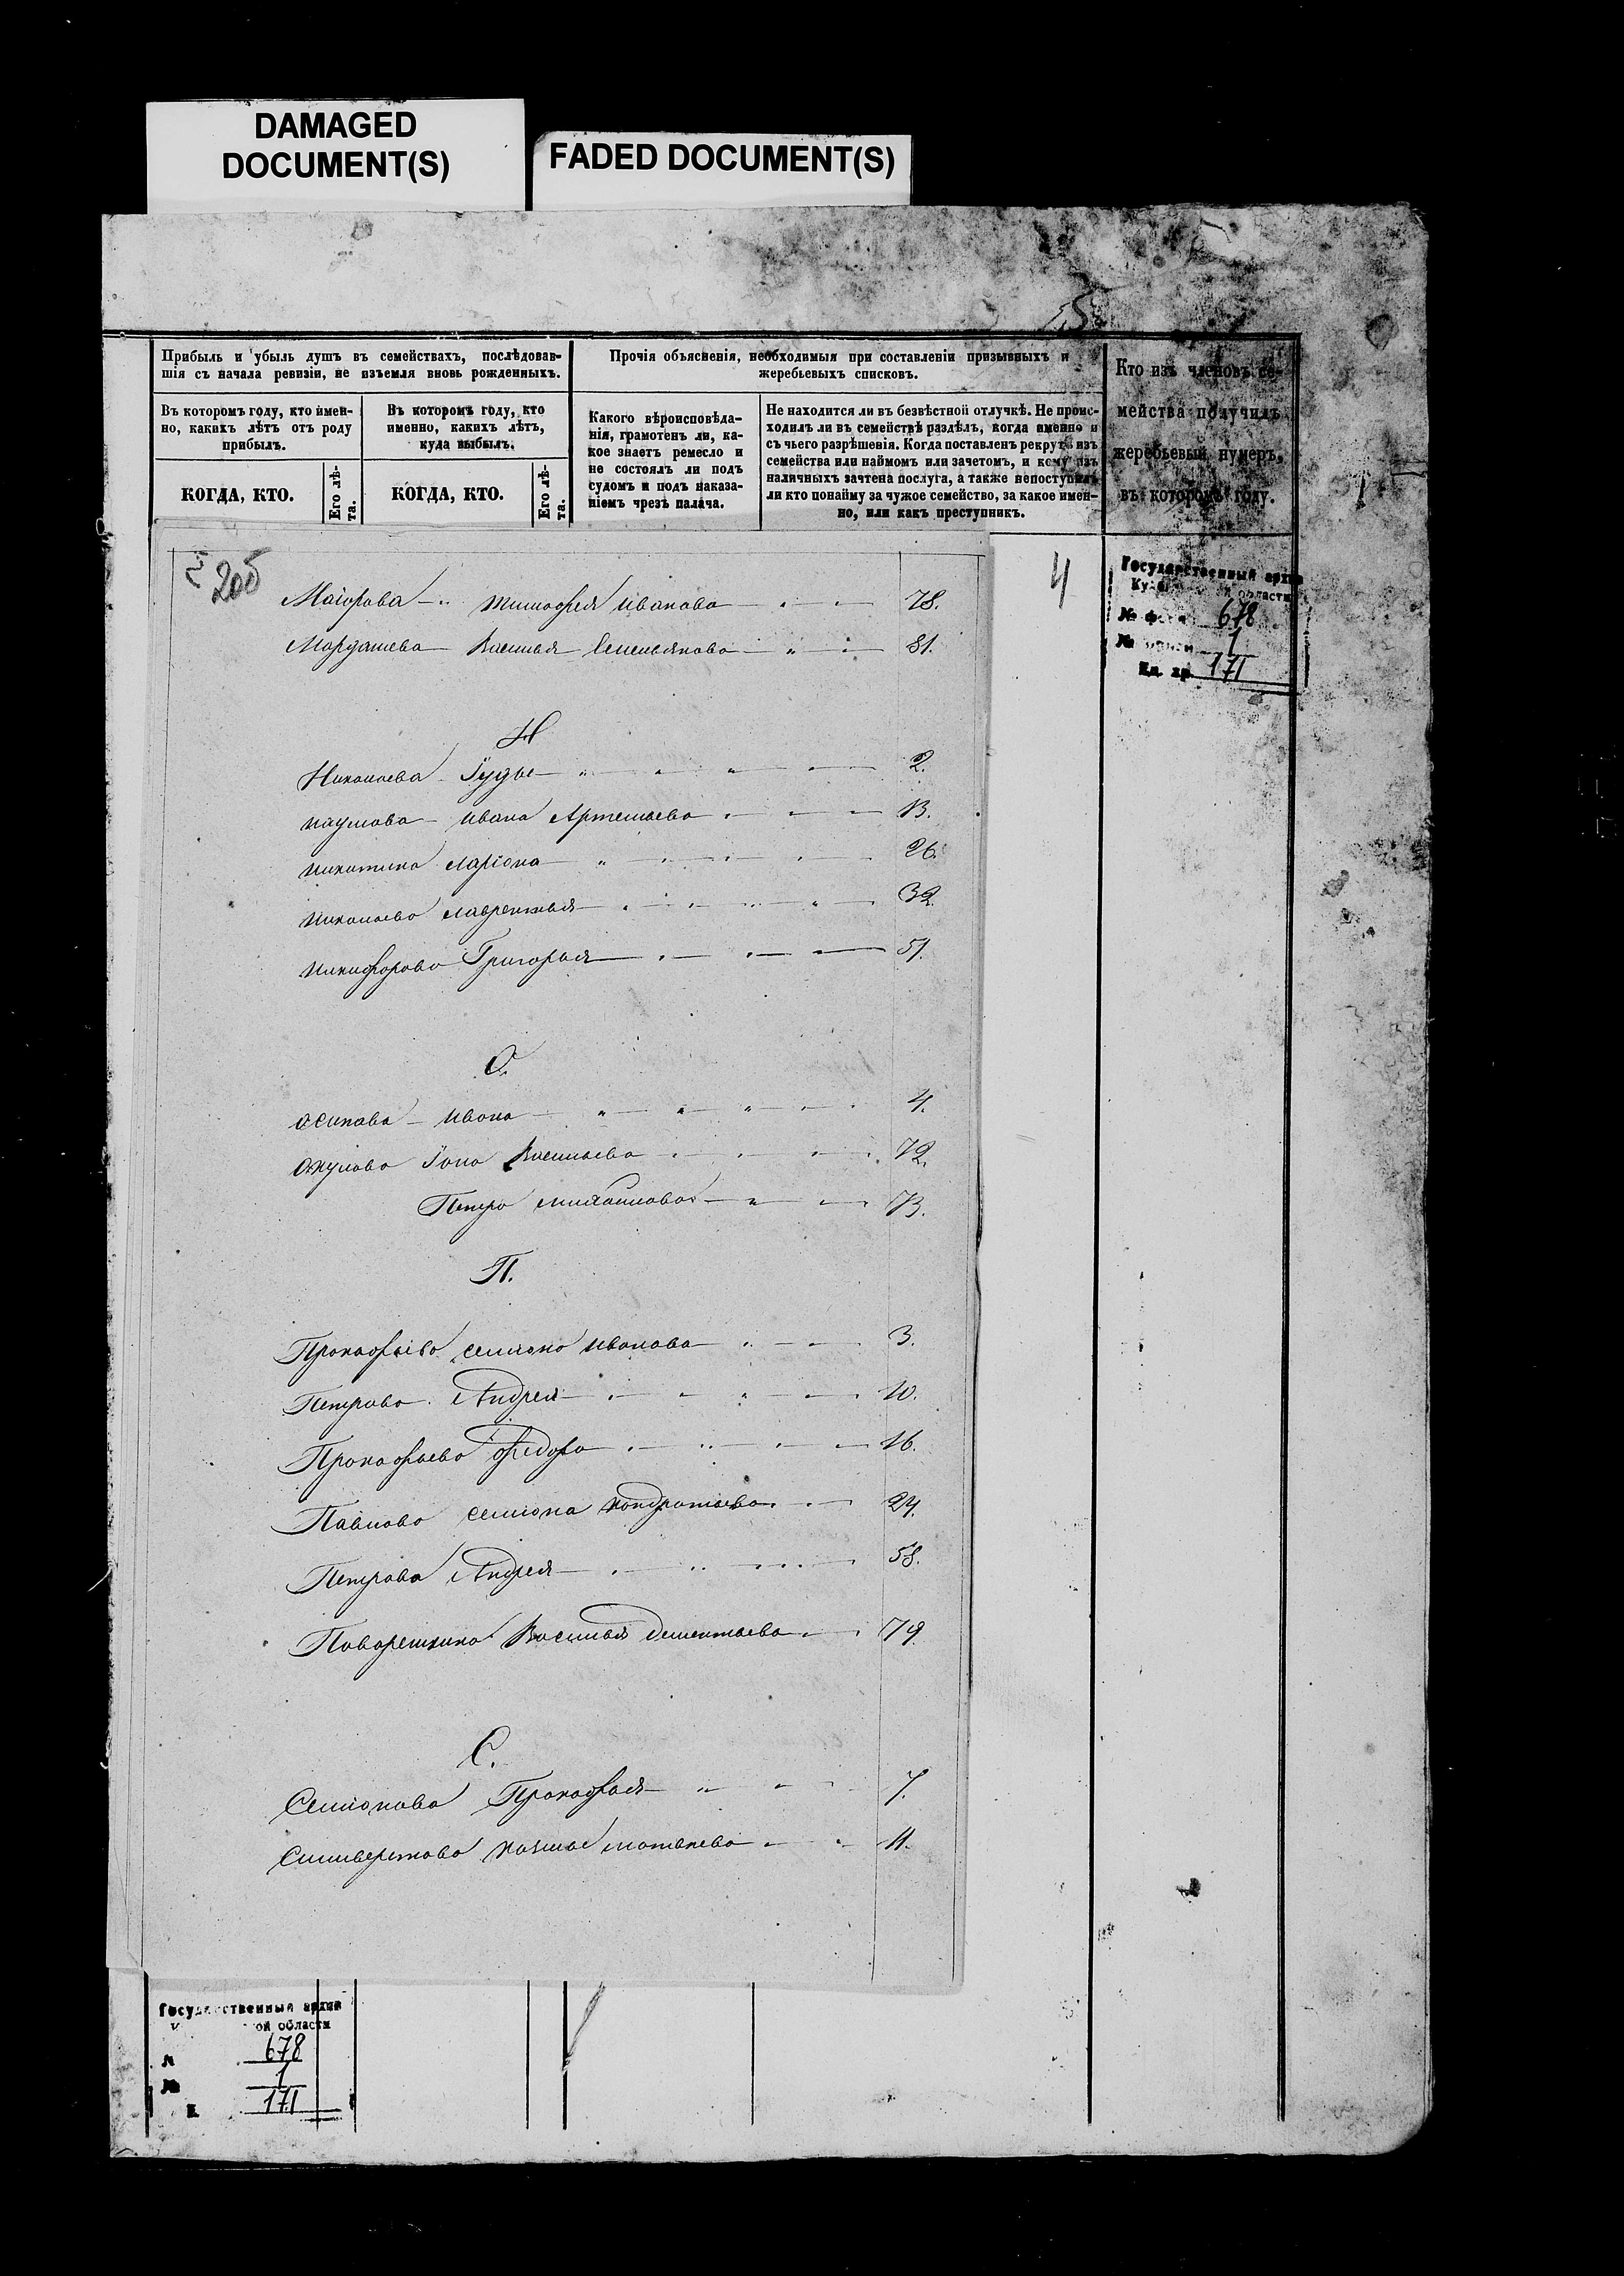 DAMAGED
DOCUMENT(S)
FADED DOCUMENT(S)
Прибыль и убыль душъ въ семействахъ, послѣдовав-
шія съ начала ревизіи, не изъемля вновь рожденныхъ.
Въ которомъ году, кто имен-
но, какихъ лѣтъ отъ роду
прибылъ.
КОГДА, КТО.
Его лѣ-
та.
Въ которомъ году, кто
именно, какихъ лѣтъ,
куда выбылъ.
КОГДА, КТО.
Его лѣ-
та.
Прочія объясненія, необходимыя при составленіи призывныхъ и
жеребьевыхъ списковъ.
Какого вѣроисповѣда-
нія, грамотенъ ли, ка-
кое знаетъ ремесло и
не состоялъ ли подъ
судомъ и подъ наказа-
ніемъ чрезъ палача.
Не находится ли въ безвѣстной отлучкѣ. Не проис-
ходилъ ли въ семействѣ раздѣлъ, когда именно и
съ чьего разрѣшенія. Когда поставленъ рекрутъ изъ
семейства или наймомъ или зачетомъ, и кому изъ
наличныхъ зачтена послуга, а также непоступилъ
ли кто понайму за чужое семейство, за какое имен-
но, или какъ преступник.
Кто изъ членовъ се-
мейства получилъ
жеребьевый нумеръ,
въ которомъ году.
205
4
Государственный архив
области
678
1
Ед. хр. 171
Маіорова Тимофея Иванова 78.
Мордашева Василья Емельянова 81.
Н
Николаева Іуды 2.
Наумова Ивана Артемьева 13.
Никитина Ларіона 26.
Николаева Лаврентья 32.
Никифорова Григорья 51.
О.
Осипова Ивана 4.
Окулова Іона Васильева 72.
Петра Михайлова 73.
П.
Прокофьева Семіона Иванова 3.
Петрова Андрея 10.
Прокофьева Федора 16.
Павлова Семіона Кондратьева 24.
Петрова Андрея 58.
Поворешкина Василья Дементьева 79.
С.
Семіонова Прокофья 7.
Силиверстова Козьмы Матвѣева 11.
Государственный архив
ой области
678
1
171